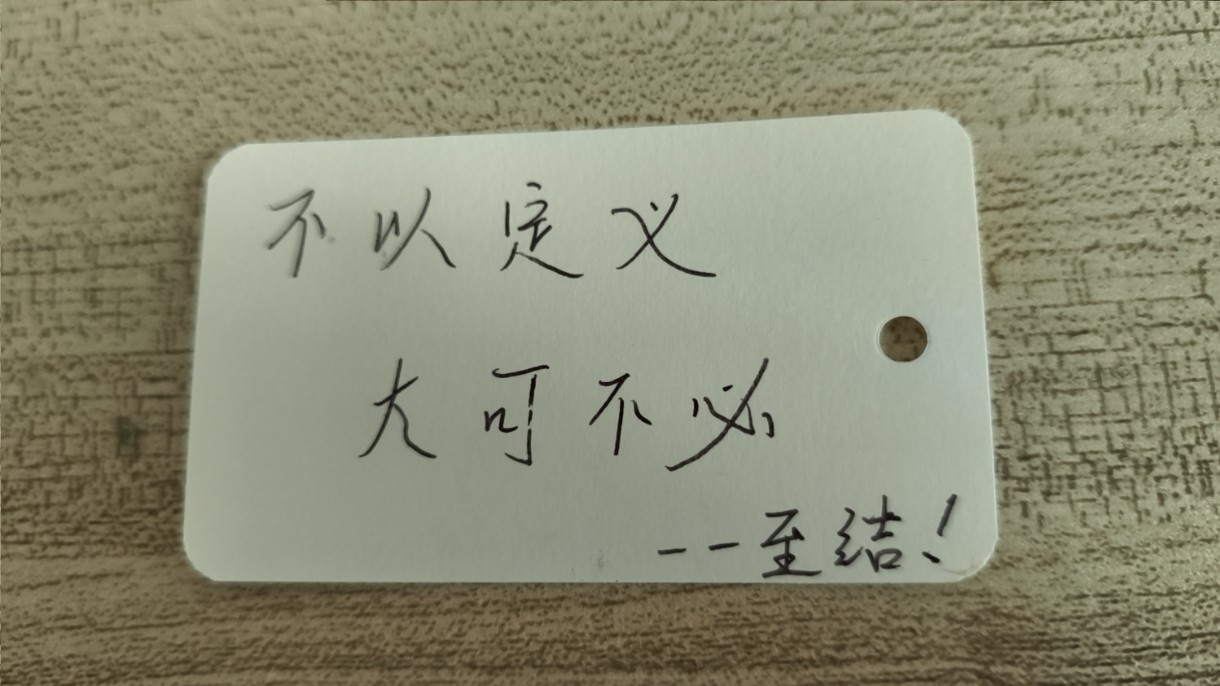 不以定义
大可不必
--至结！